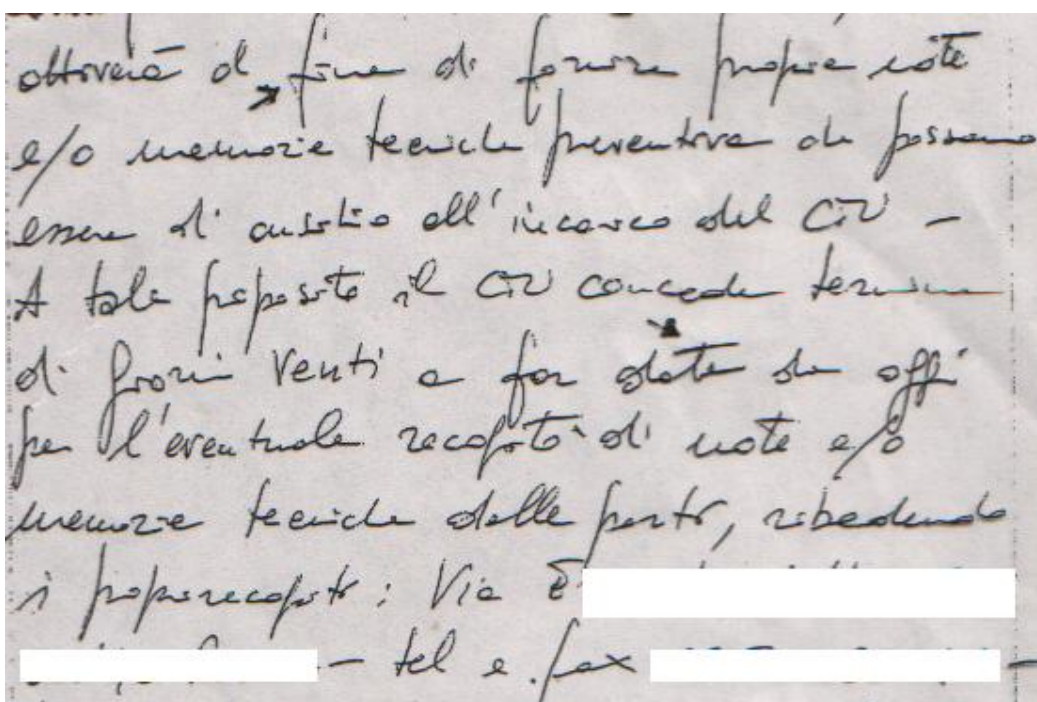 al fine di fornire proprie note
e/o memorie tecniche preventive che possano
essere di ausilio all'incarico del CTU -
A tale proposito il CTU concede termine
di giorni venti a far data da oggi
per l'eventuale recapito di note e/o
memorie tecniche delle parti, ribadendo
i propri recapiti: Via
- tel e fax -